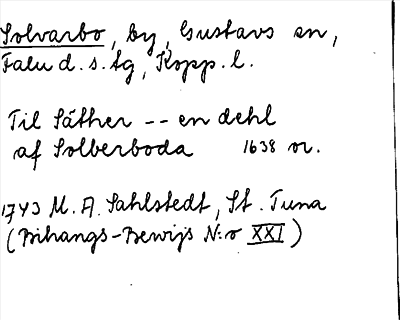 Solvarbo, by, Gustavs sn,
Falu d. s. tg, Kopp. l.
Til Säther -- en dehl
af Solberboda 1638 or.
1743 M. A. Sahlstedt, St. Tuna
(Bihangs-Bewijs N:o XXI)